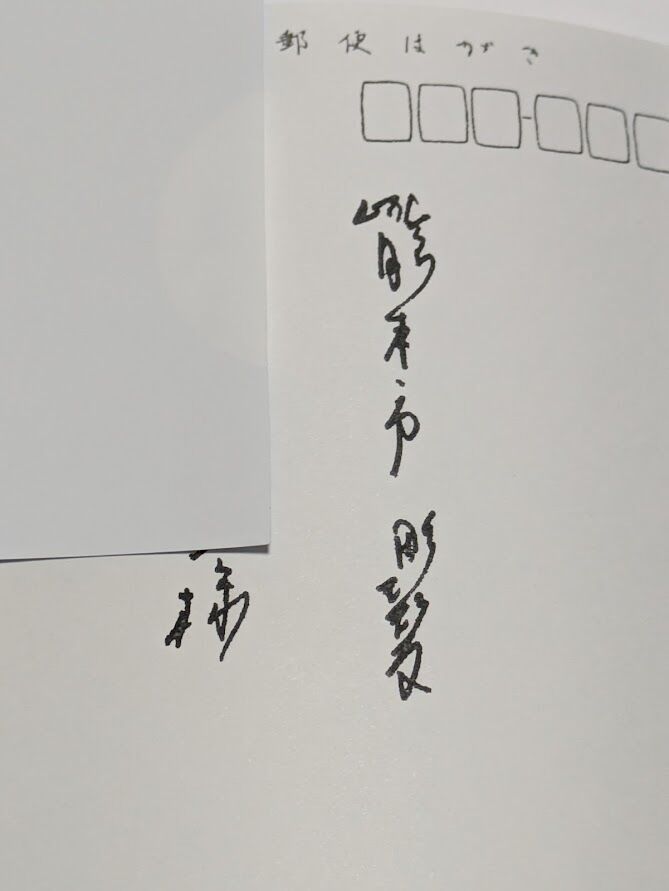 郵便はがき
熊本市
様